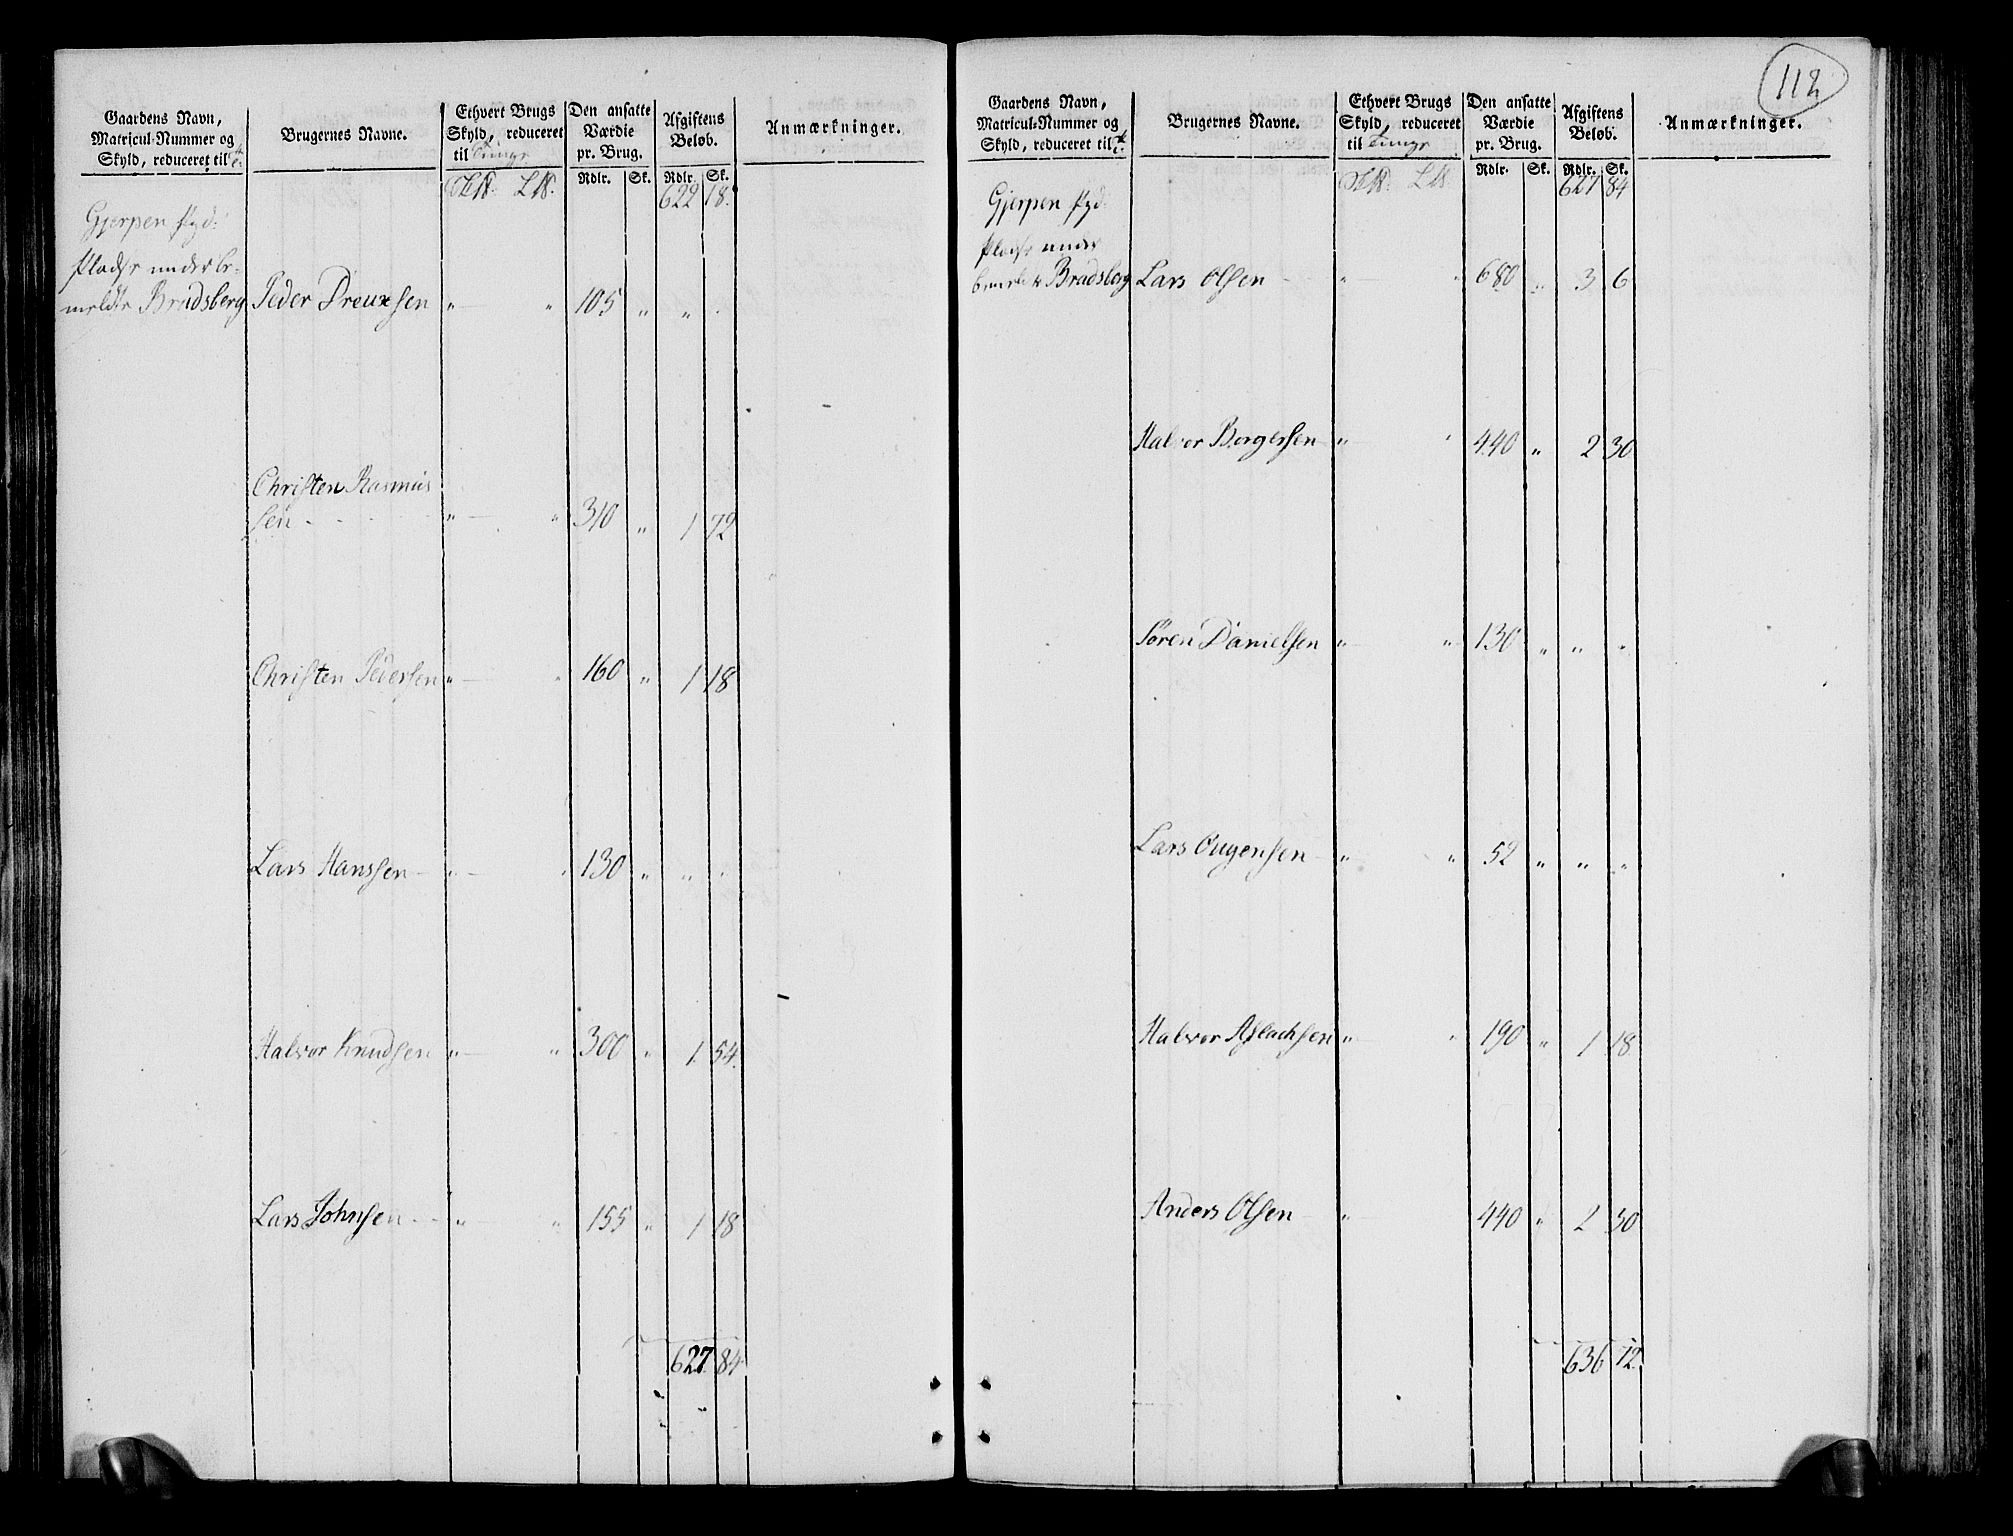 Gaardens Navn,
Matricul-Nummer og
Skyld, reduceret til
Brugernes Navne.
Ethvert Brugs
Skyld, reduceret
til Tunge
Den ansatte
Værdie
pr. Brug.
Afgiftens
Beløb.
Anmærkninger.
Rdlr. Sk. Rdlr. Sk.
622 18.
Gjerpen
Pladse under be-
meldte Bradsberg Peder Dreuxsen " " 105 " "
Christen Rasmus
sen " " 310 " 1 72
Christen Pedersen " " 160 " 1 18
Lars Hanssen " " 130 " " "
Halvor Knudsen " " 300 " 1 54.
Lars Johnsen " " 155 " 1 18
627 84
112
Gaardens Navn,
Matricul-Nummer og
Skyld, reduceret til
Brugernes Navne.
Ethvert Brugs
Skyld, reduceret
til Tunge
Den ansatte
Værdie
pr. Brug.
Afgiftens
Beløb.
Anmærkninger.
Rdlr. Sk. Rdlr. Sk.
627 84
Gjerpen
Pladse under
bemeldte Bradsberg Lars Olsen " " 680 " 3 6
Halvor Borgersen " " 440 " 2 30
Sören Danielsen " " 130 " " "
Lars Ougensen " " 52 " " "
Halvor Aslachsen " " 190 " 1 18
Anders Olsen " 440 " 2 30
636 12